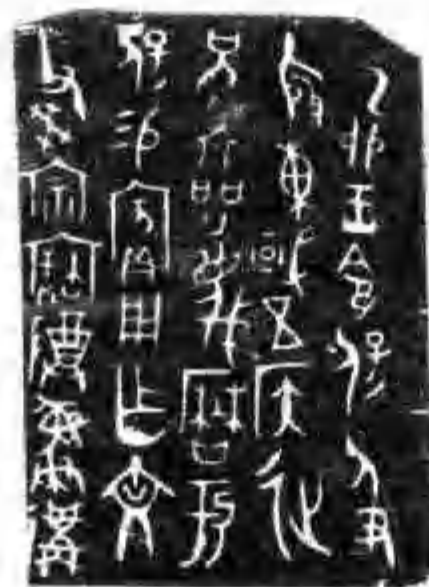 乙卯王令保及
殷東或五侯征
兄六品蔑曆于
保易賓用乍文
父癸宗寶尊彝遘